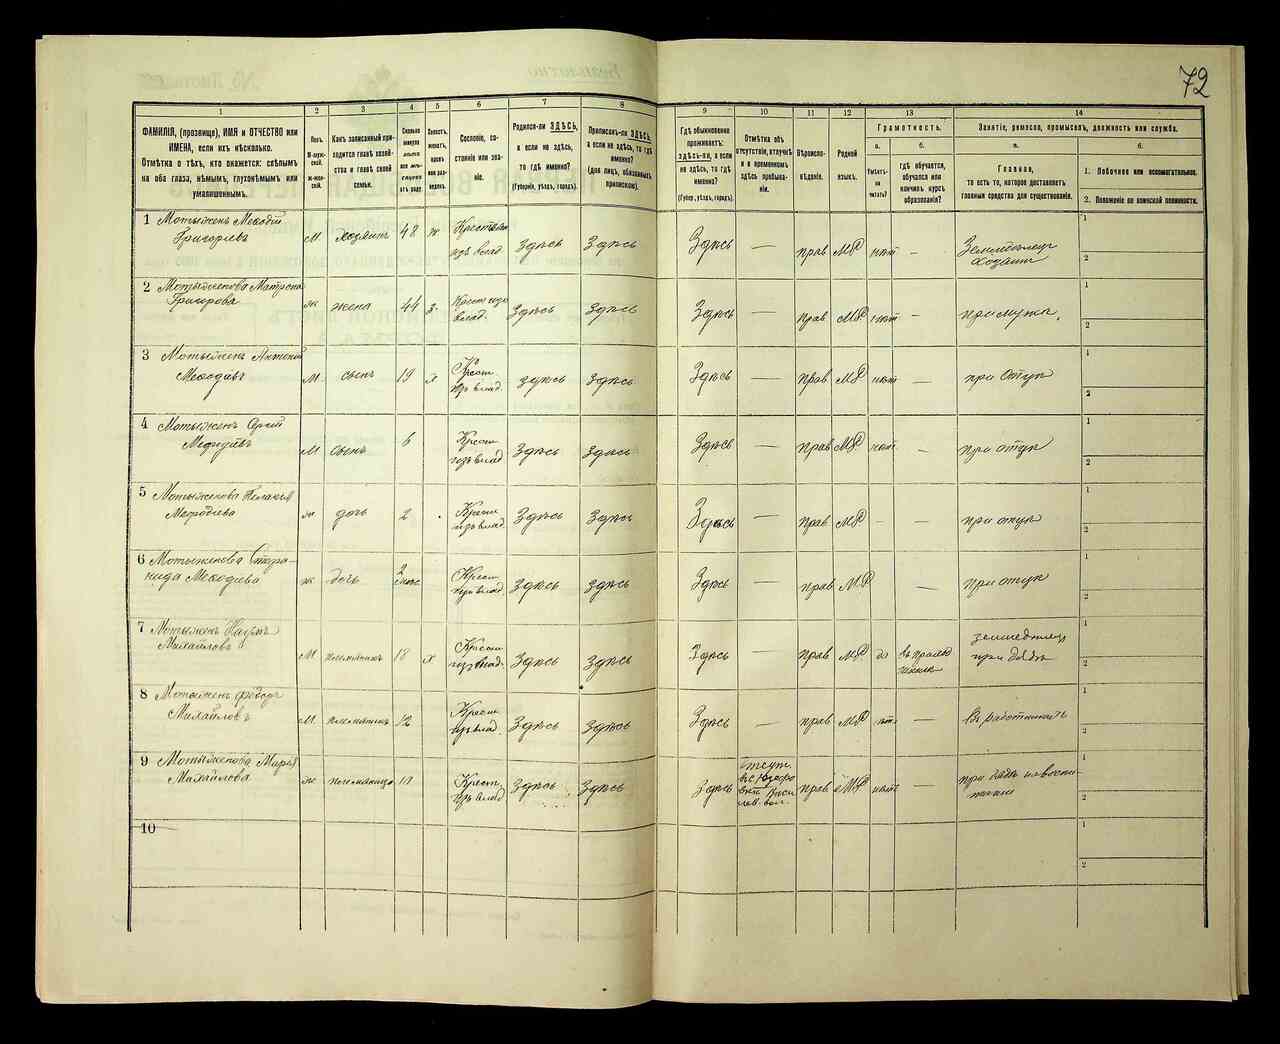 72
1
2
3
4
5
6
7
8
9
10
11
12
13
14
ФАМИЛІЯ, (прозвище), ИМЯ и ОТЧЕСТВО или
ИМЕНА, если ихъ нѣсколько.
Отмѣтка о тѣхъ, кто окажется: слѣпымъ
на оба глаза, нѣмымъ, глухонѣмымъ или
умалишеннымъ.
Полъ.
М-муж-
ской.
ж-жен-
ской.
Какъ записанный при-
ходится главѣ хозяй-
ства и главѣ своей
семьи.
Сословіе, со-
стояніе или зва-
ніе.
Родился-ли ЗДѢСЬ,
а если не здѣсь,
то гдѣ именно?
(Губернія, уѣздъ, городъ).
Приписанъ-ли ЗДѢСЬ,
а если не здѣсь, то гдѣ
именно?
(для лицъ, обязанныхъ
припискою).
Гдѣ обыкновенно
проживаетъ:
здѣсь-ли, а если
не здѣсь, то гдѣ
именно?
(Губер., уѣздъ, городъ).
Отмѣтка объ
отсутствіи, отлучкѣ
и о временномъ
здѣсь пребыва-
ніи.
Вѣроиспо-
вѣданіе.
Родной
языкъ.
Грамотность.
а.
Умѣетъ-
ли
читать?
б.
гдѣ обучается,
обучался или
кончилъ курсъ
образованія?
Занятіе, ремесло, промыселъ, должность или служба.
а.
Главное,
то есть то, которое доставляетъ
главныя средства для существованія.
б.
1. Побочное или вспомогательное.
2. Положеніе по воинской повинности.
1 Мотыженъ Меѳодій
Григорьевъ
М хозяинъ 48 ж Крестьян
изъ влад Здѣсь Здѣсь Здѣсь — прав МР нѣт — Земледѣлец
хозяин
1
2
2 Мотыженова Матрона
Григорова
ж жена 44 з. Крест изъ
влад. Здѣсь Здѣсь Здѣсь — прав МР нѣт — при мужѣ
1
2
3 Мотыженъ Антоній
Меѳодіевъ
М. сынъ 19 х Крест
изъ влад. здѣсь Здѣсь Здѣсь — прав МР нѣт — при отцѣ
1
2
4 Мотыженъ Сергій
Меѳодіевъ
М сынъ 6 Крест
изъ влад Здѣсь Здѣсь Здѣсь — прав МР. нѣт — при отцѣ
1
2
5 Мотыженова Пелагія
Меѳодіева
ж дочь 2 Крест
изъ влад Здѣсь Здѣсь Здѣсь — прав МР - - при отцѣ
1
2
6 Мотыженова Стефа-
нида Меѳодіева
ж дочь 2
мѣс Крест
изъ влад. Здѣсь Здѣсь Здѣсь — прав МР — при отцѣ
1
2
7 Мотыженъ Наумъ
Михайловъ
М племянникъ 18 х Крест
изъ влад. Здѣсь Здѣсь Здѣсь прав МР да земледѣлец
при дядѣ
1
2
8 Мотыженъ Ѳедоръ
Михайловъ
М племянникъ 12 Крест
изъ влад. Здѣсь Здѣсь Здѣсь — прав МР нѣт — Въ работникахъ
1
2
9 Мотыженова Марія
Михайлова
ж племяница Крест
изъ влад Здѣсь Здѣсь Здѣсь отсут. прав МР нѣт — при дядѣ на воспи-
таніи
1
2
10
1
2